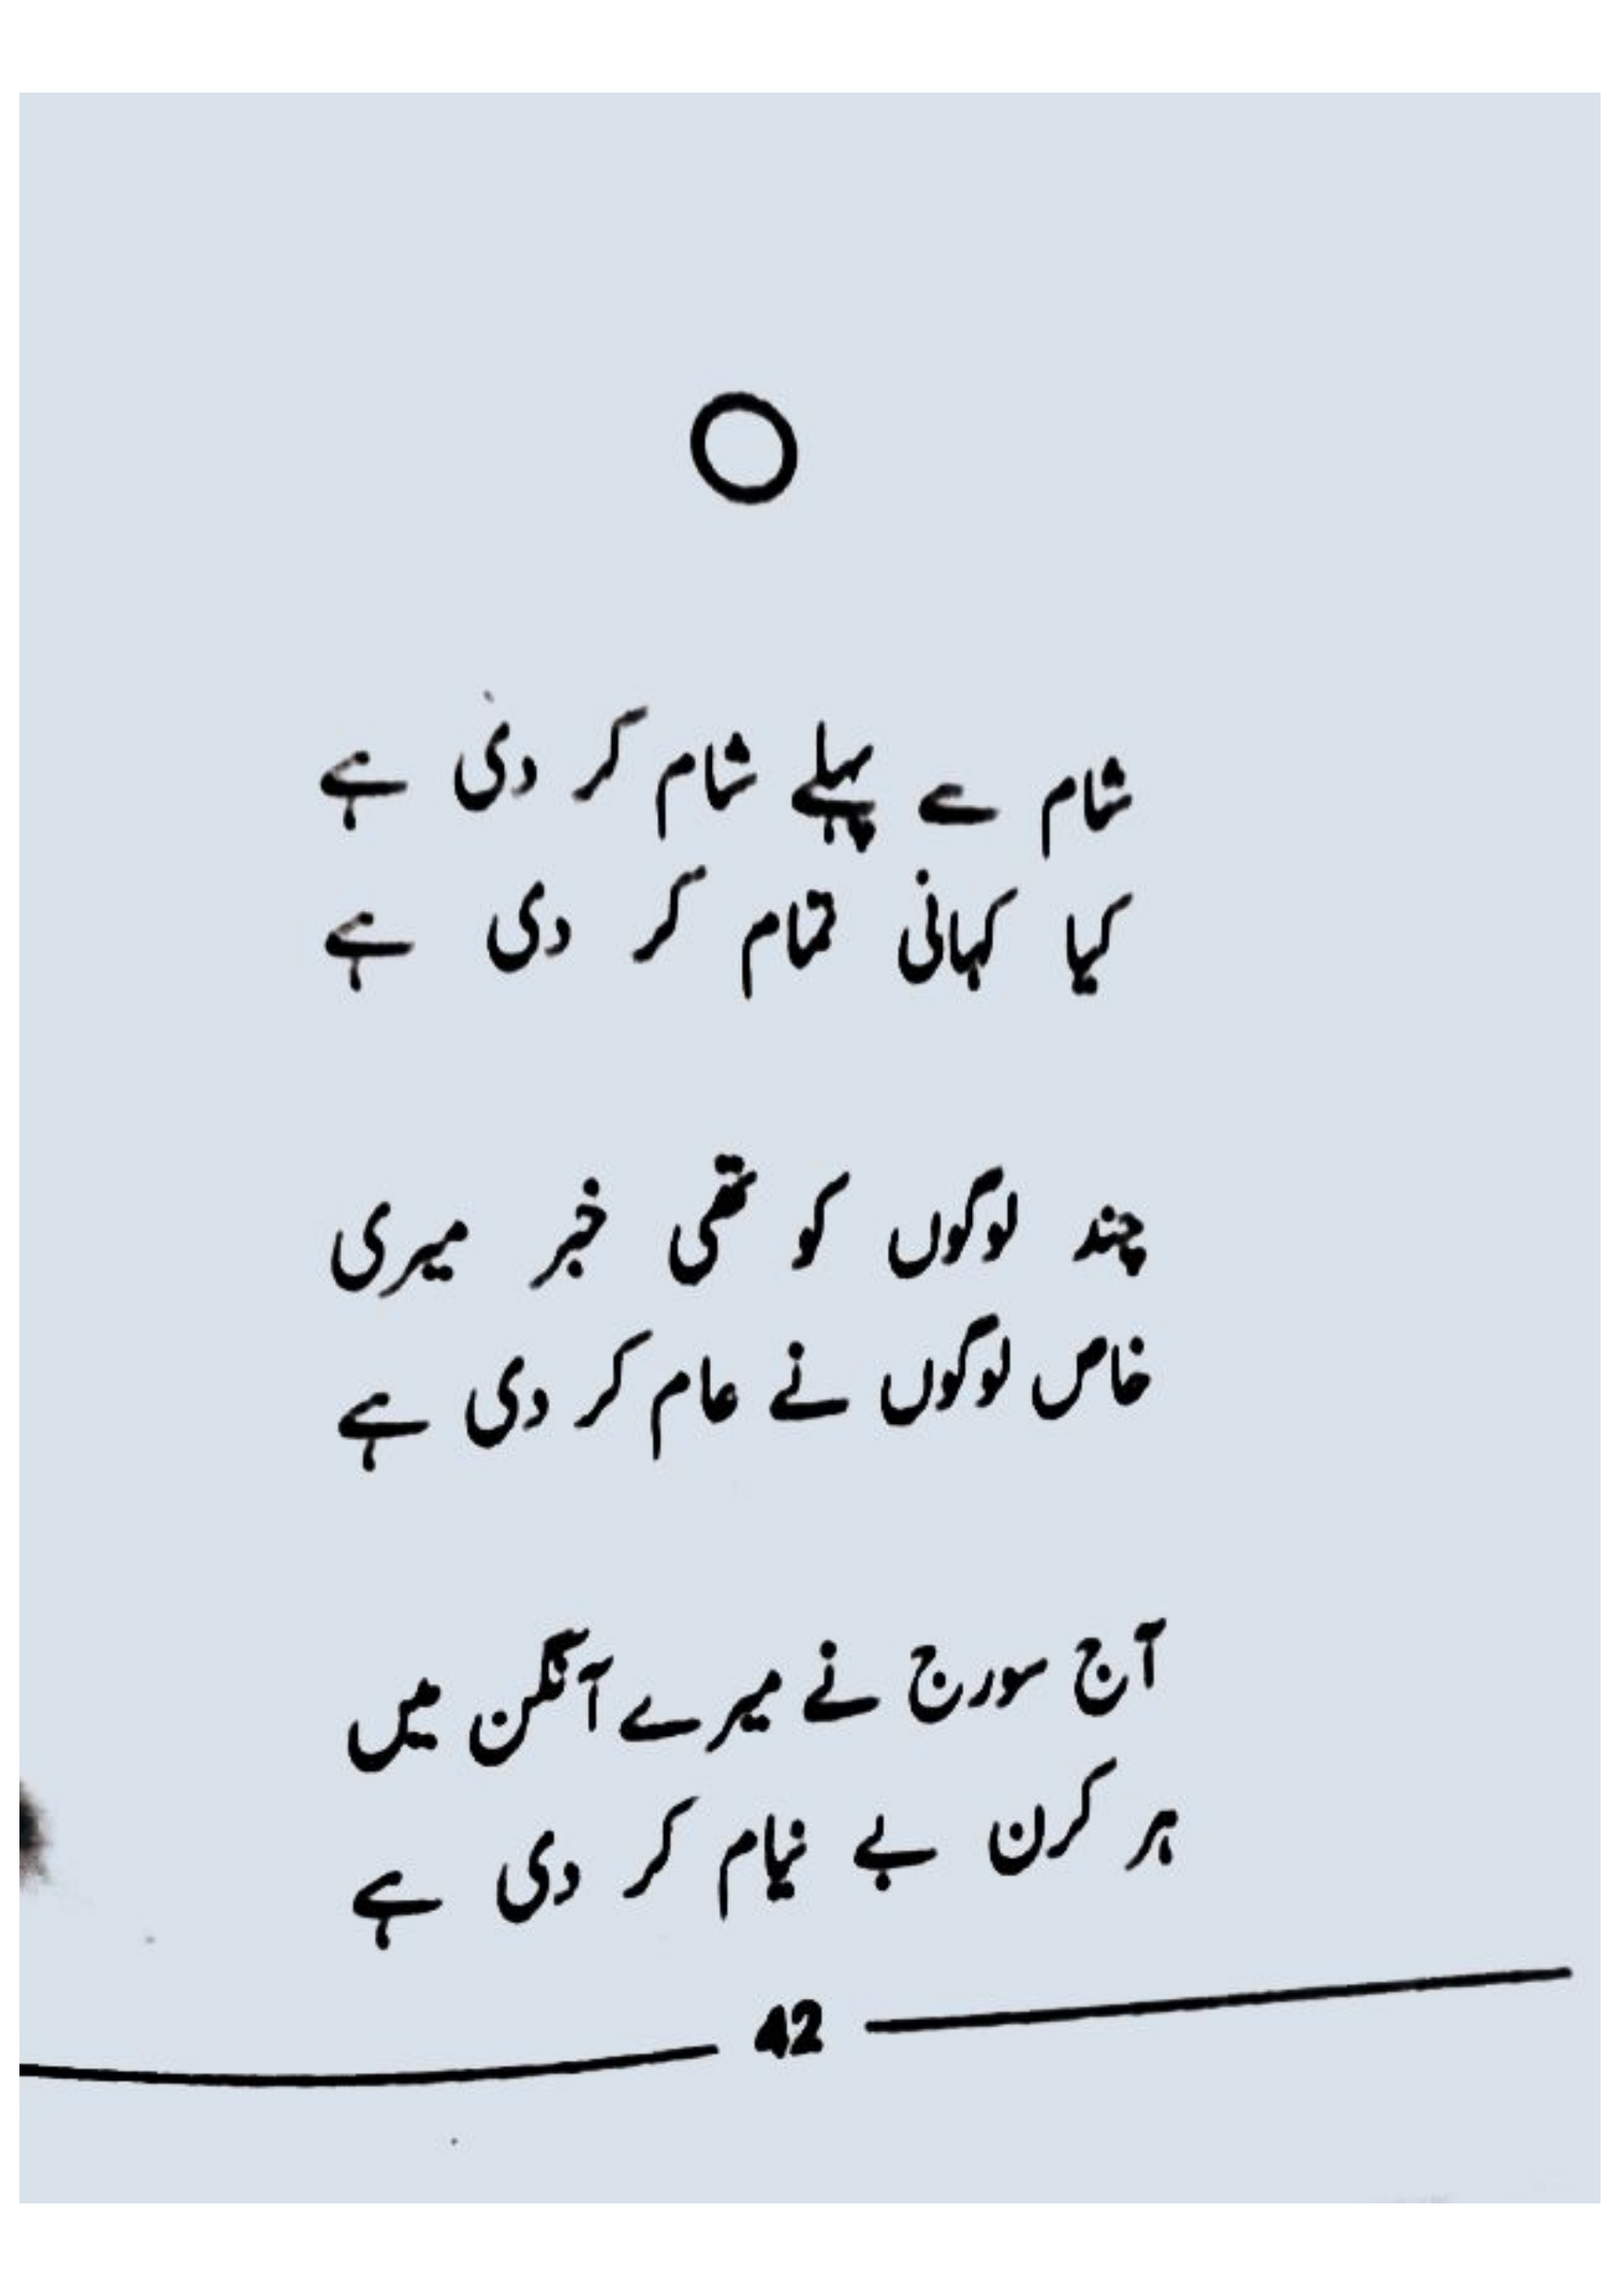 شام سے پہلے شام کر دی ہے
کیا کہانی تمام کر دی ہے
چند لوگوں کو تھی خبر میری
خاص لوگوں نے عام کر دی ہے
آج سورج نے میرے آنگن میں
ہر کرن بے نیام کر دی ہے
42